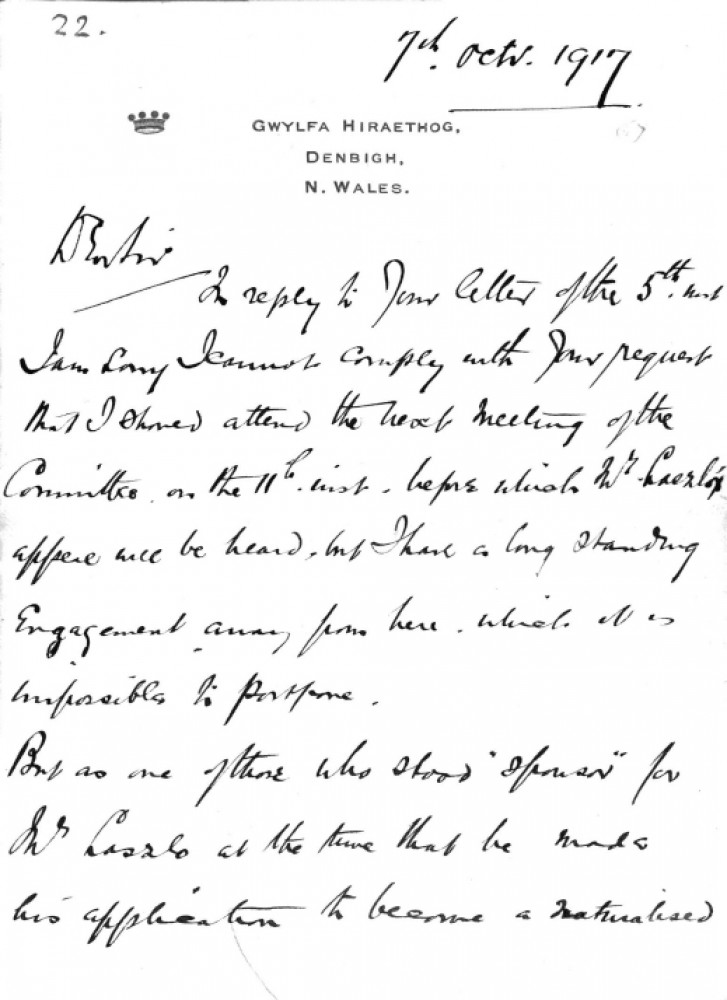 22.
7th. Octr. 1917
GWYLFA HIRAETHOG,
DENBIGH,
N. WALES.
Dear Sir
In reply to your letter of the 5th. inst
I am sorry I cannot comply with your request
that I should attend the next meeting of the
Committee on the 11th. inst. before which Mr. Laszlo's
appeal will be heard, but I have a long standing
Engagement away from here. which it is
impossible to postpone.
But as one of those who stood "sponsor" for
Mr Laszlo at the time that he made
his application to become a naturalised